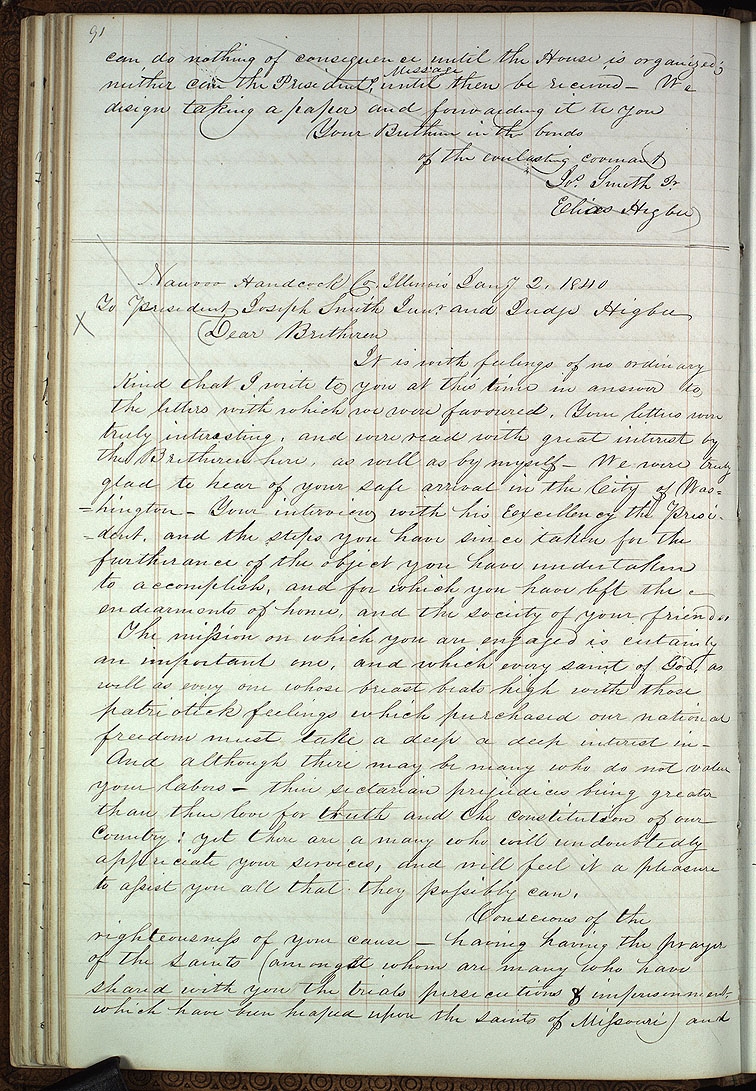 91
can do nothing of consequence until the House is organized;
neither can the President's Message until then be received— We
design taking a paper and forwarding it to you
Your Brethren in the bonds
of the everlasting covenant
Jos. Smith Jr
Elias Higbee
Nauvoo Handcock Co, Illinois Jany 2, 1840
To President Joseph Smith Junr. and Judge Higbee
X
Dear Bretheren
It is with feelings of no ordinary
kind that I write to you at this time in answer to
the letters with which we were favoured. Your letters were
truly interesting, and were read with great interest by
the Bretheren here, as well as by myself— We were truly
glad to hear of your safe arrival in the City of Was=
=hington— Your interview with his Excellency the Presi-
-dent, and the steps you have since taken for the
furtherance of the object you have undertaken
to accomplish, and for which you have left the e-
ndearments of home, and the society of your friends
The mission on which you are engaged is certainly
an important one, and which every saint of God, as
well as every one whose breast beats high with those
patriotick feelings which purchased our national
freedom must take a deep a deep interest in—
And although there may be many who do not value
your labors— their sectarian prejudices being greater
than their love for truth and the constitution of our
Country: yet there are a many who will undoubtedly
appreciate your services, and will feel it a pleasure
to assist you all that they possibly can.
Conscious of the
righteousness of your cause— having having the prayer
of the saints (amongst whom are many who have
shared with you the trials persecutions & imprisonment
which have been heaped upon the saints of Missouri) and